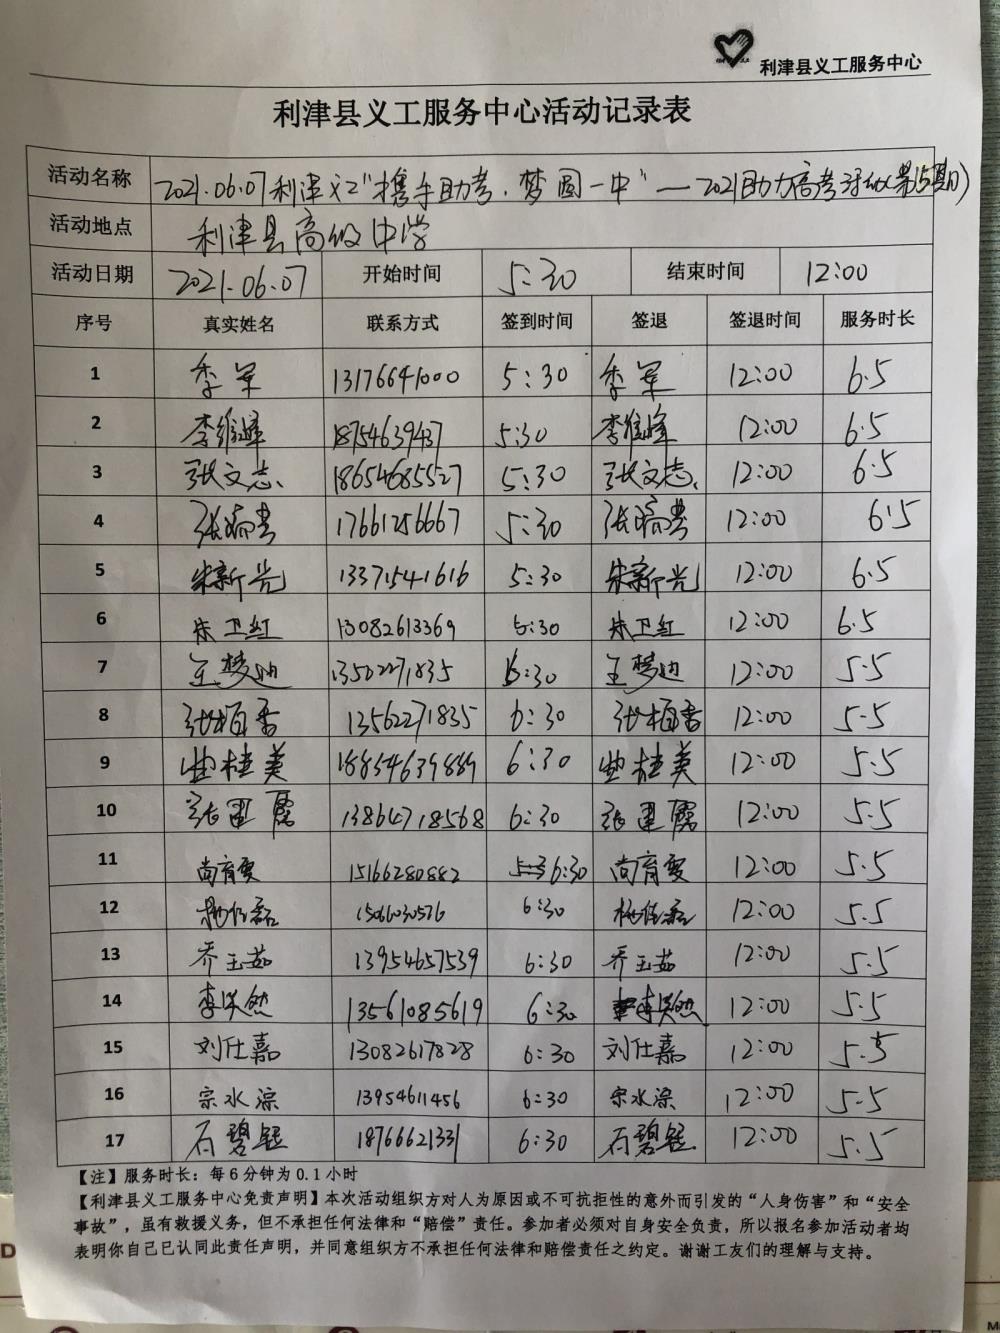 利津县义工服务中心
利津县义工服务中心活动记录表
活动名称 2021.06.07利津义工"携手助考.梦圆一中"—2021助力高考活动(第15期)
活动地点 利津县高级中学
活动日期 2021.06.07 开始时间 5:30 结束时间 12:00
序号 真实姓名 联系方式 签到时间 签退 签退时间 服务时长
1 季军 13176641000 5:30 季军 12:00 6.5
2 李维峰 18754639437 5:30 李维峰 12:00 6.5
3 张文志 18654685527 5:30 张文志 12:00 6.5
4 17661256667 5:30 12:00 6.5
5 朱新光 13371541616 5:30 朱新光 12:00 6.5
6 朱卫红 13082613369 5:30 朱卫红 12:00 6.5
7 王梦迪 13502271835 6:30 王梦迪 12:00 5.5
8 13562271835 6:30 12:00 5.5
9 曲桂美 18854639889 6:30 曲桂美 12:00 5.5
10 13864718568 6:30 12:00 5.5
11 尚育雯 15166280882 6:30 尚育雯 12:00 5.5
12 15066030576 6:30 12:00 5.5
13 乔玉茹 13954657539 6:30 乔玉茹 12:00 5.5
14 李昊然 13561085619 6:30 李昊然 12:00 5.5
15 刘仕嘉 13082617828 6:30 刘仕嘉 12:00 5.5
16 宗水淙 13954611456 6:30 宗水淙 12:00 5.5
17 18766621331 6:30 12:00 5.5
【注】服务时长：每6分钟为0.1小时
【利津县义工服务中心免责声明】本次活动组织方对人为原因或不可抗拒性的意外而引发的“人身伤害”和“安全
事故”，虽有救援义务，但不承担任何法律和“赔偿”责任。参加者必须对自身安全负责，所以报名参加活动者均
表明你自己已认同此责任声明，并同意组织方不承担任何法律和赔偿责任之约定。谢谢工友们的理解与支持。